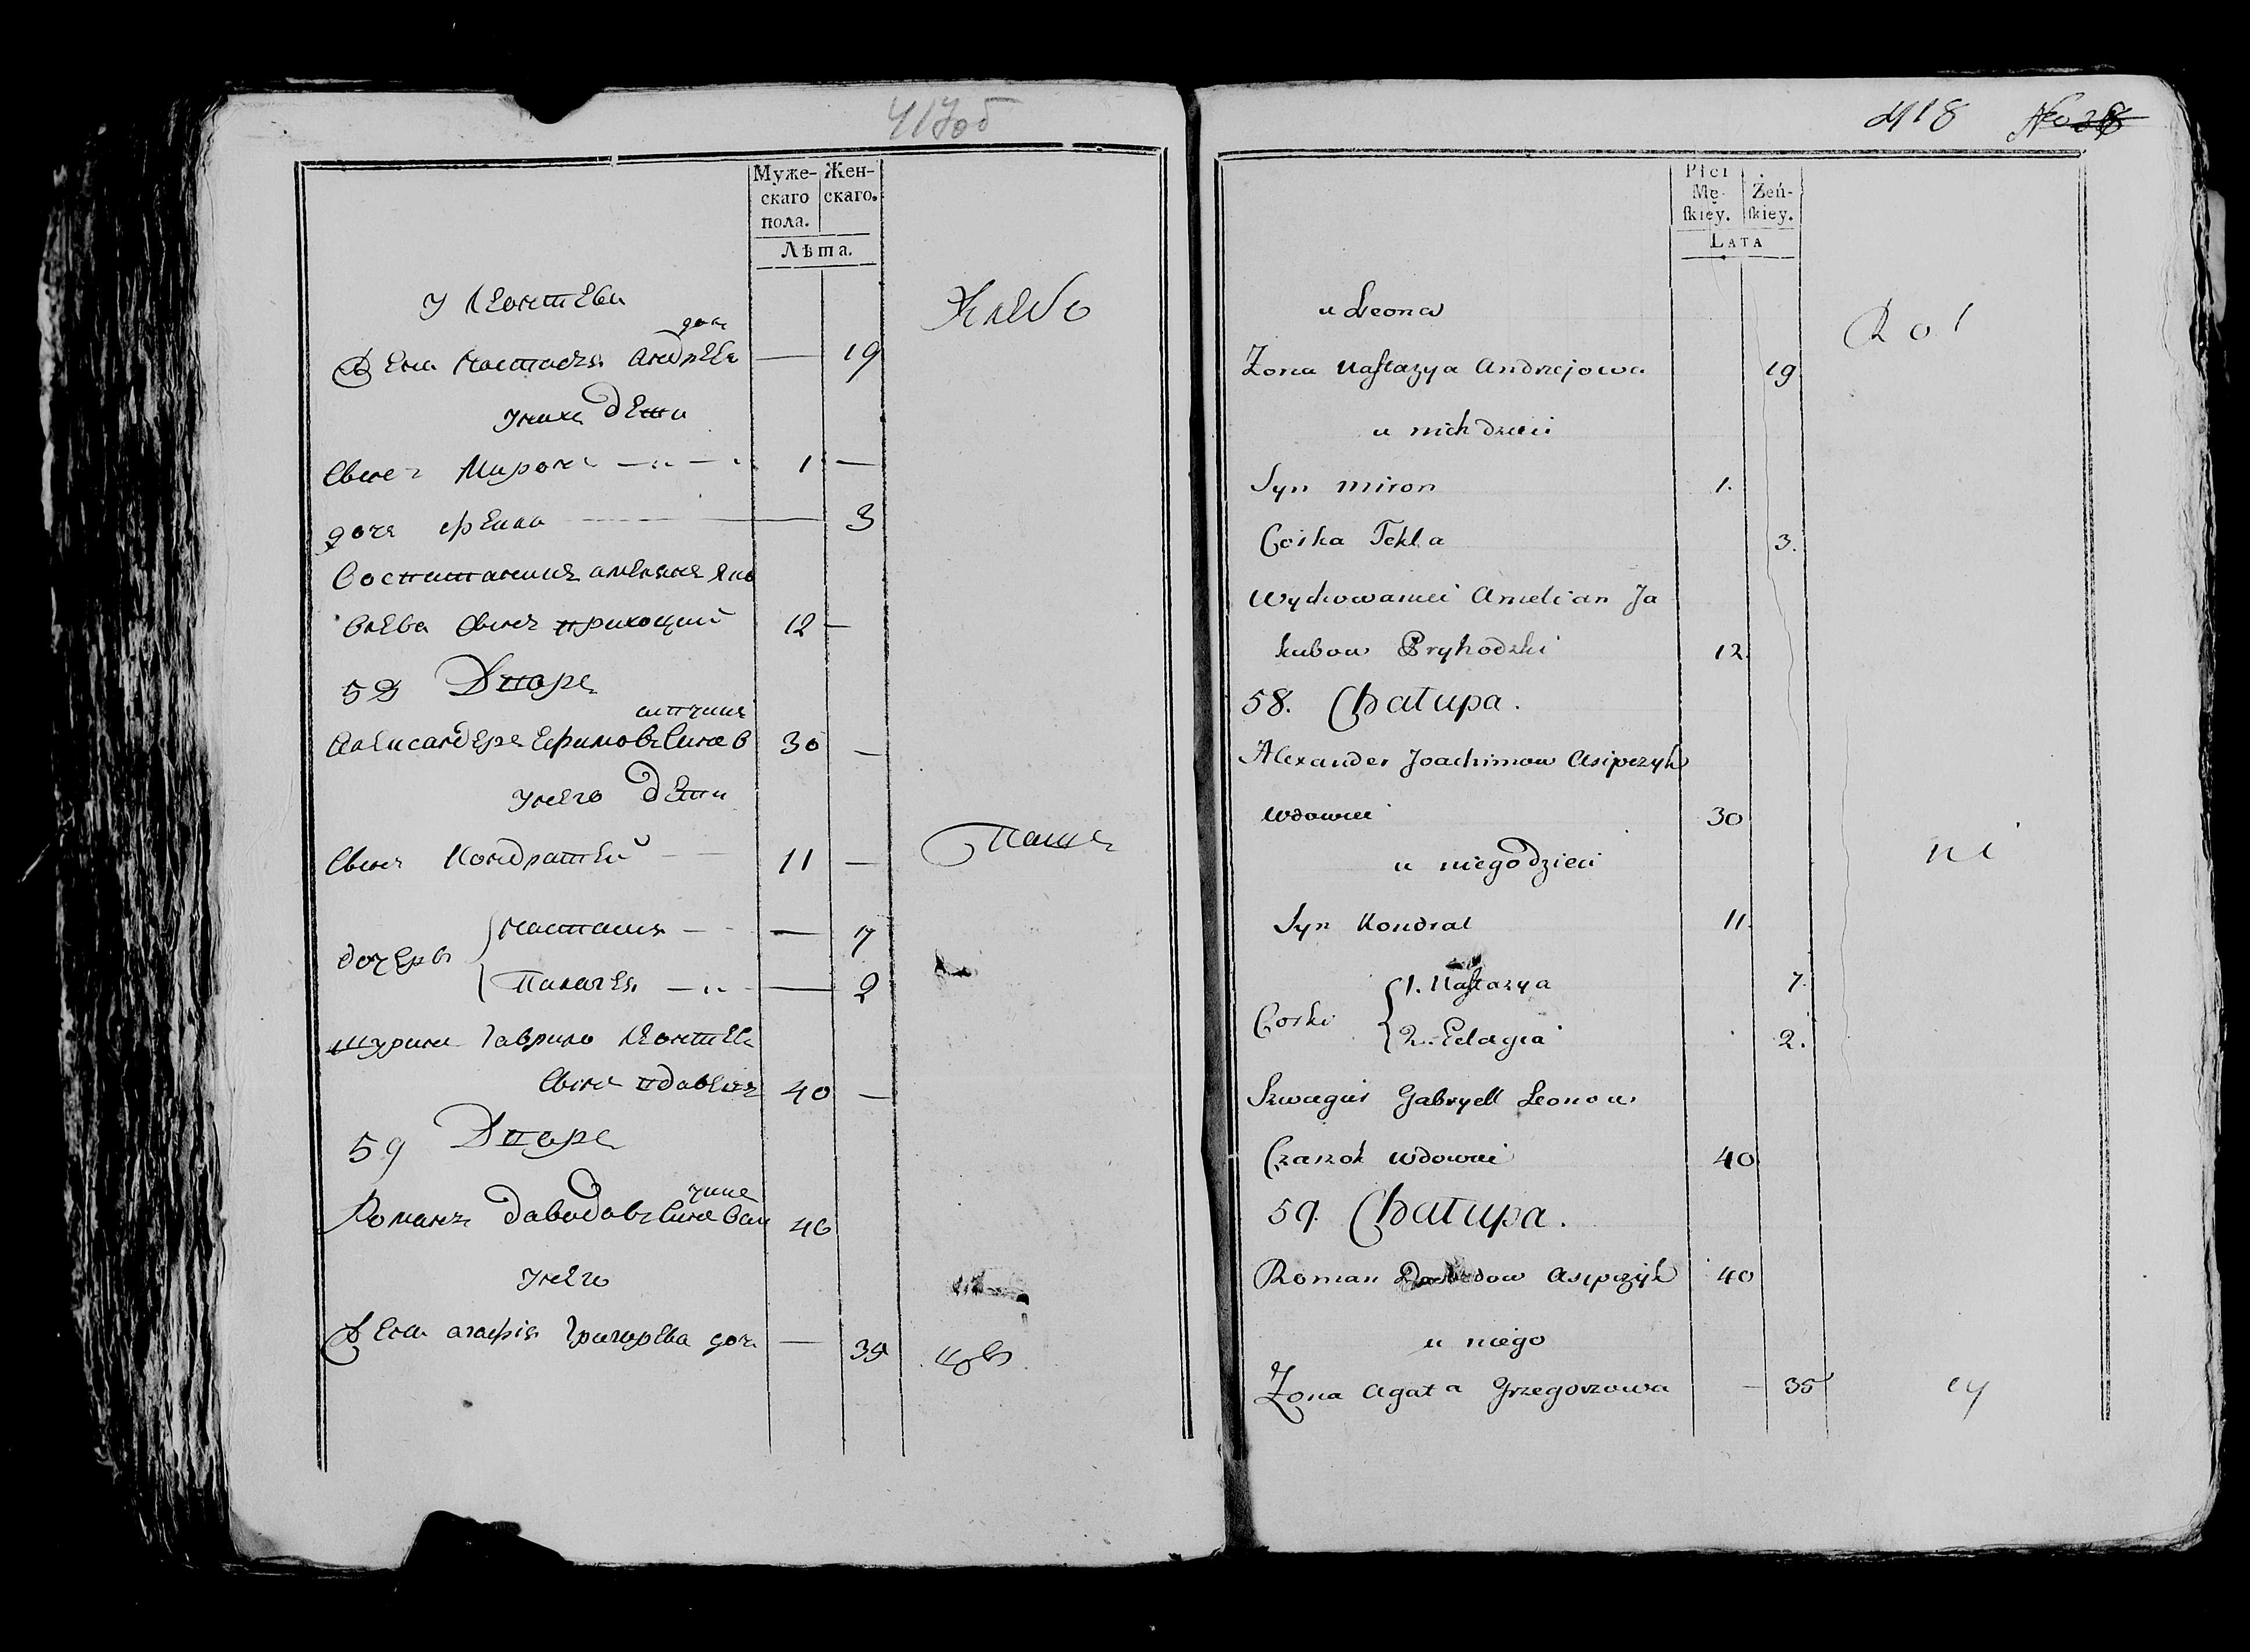 417об
Муже- Жен-
скаго скаго.
пола.
Лѣта.
У Леонтева
доч
Жена Настасья Андреева — 19
Хлебо
У них дети
Сынъ Миронъ 1 —
дочь 3
Воспитанникъ Амельянъ Яко
влева Сынъ 12 —
58 Дворъ
Александеръ Ефимовъ Сынъ 30 —
У него дети
Сынъ Кондратей 11 —
Паше
дочери { Настасия — 7
Палагея — 2
шуринъ Гаврило Леонтевъ
Сынъ вдовецъ 40 —
59 Дворъ
Романъ Давыдовъ Сынъ 40
У него
Жена Агафія Григорева доч — 35
цовъ
418
Płci
Mę- Żeń-
ſkiey. ſkiey.
Lata
u Leona
Rol
Zona Naſtazya Andrzejowa 19
u nich dzieci
Syn Miron 1.
Corka Tekla 3.
Wychowaniec Amelian Ja
kubow Pryhodzki 12.
58. Chałupa.
Alexander Joachimow Asipczyk
Wdowiec 30
u niego dzieci
ni
Syn Kondrat 11.
Corki { 1. Naſtazya 7.
2. Pelagia 2.
Szwagier Gabryell Leonow
Czaszok Wdowiec 40
59. Chałupa.
Roman Dawidow Asipczyk 40
u niego
Zona Agata Grzegorzowa — 35
cy